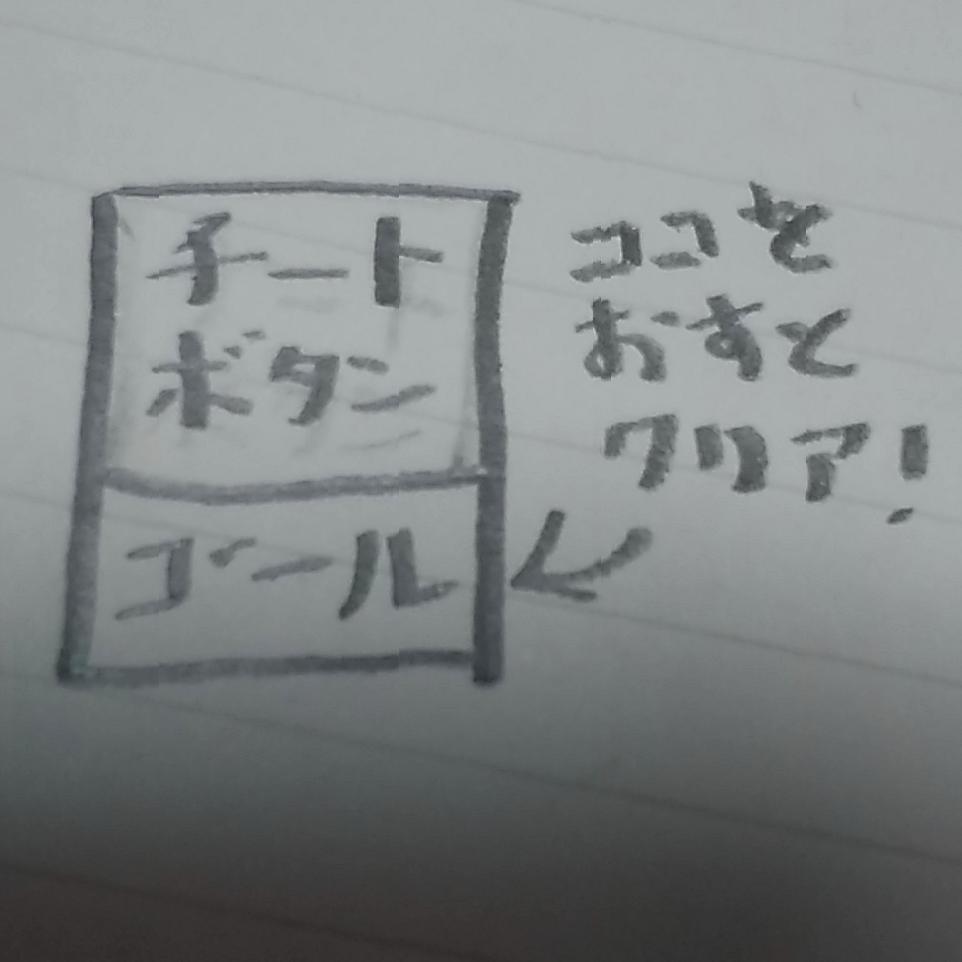 チート
ボタン
ゴール
ココを
おすと
クリア!